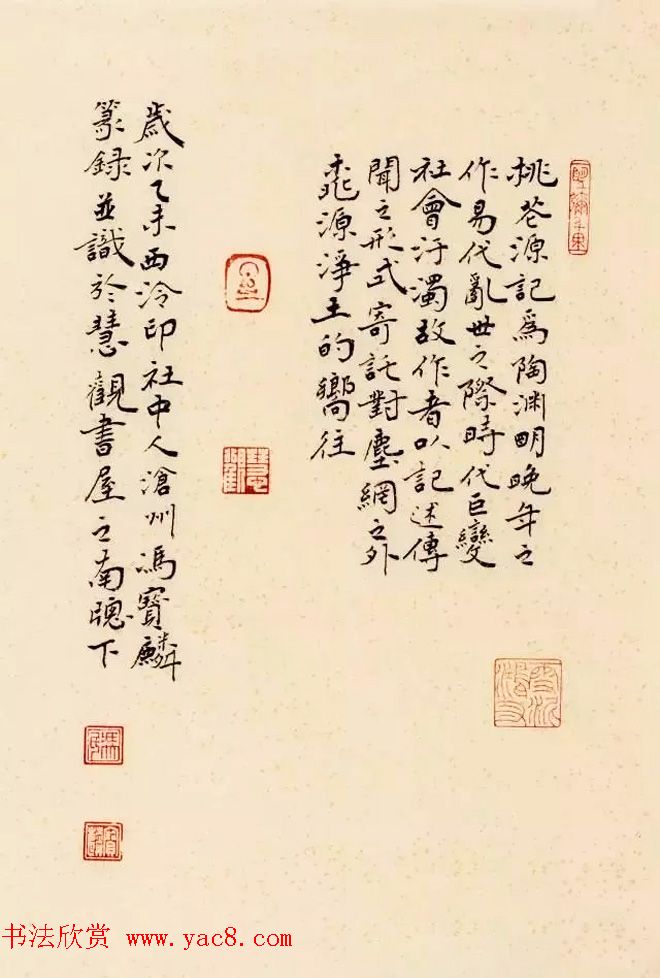 桃花源記爲陶渊明晚年之
作易代亂世之際時代巨變
社會汙濁故作者以記述傳
聞之形式寄託對塵網之外
桃源淨土的嚮往
歲次乙未西泠印社中人滄州馮寶麟
篆録並識於慧觀書屋之南牕下
慧觀
书法欣赏 www.yac8.com